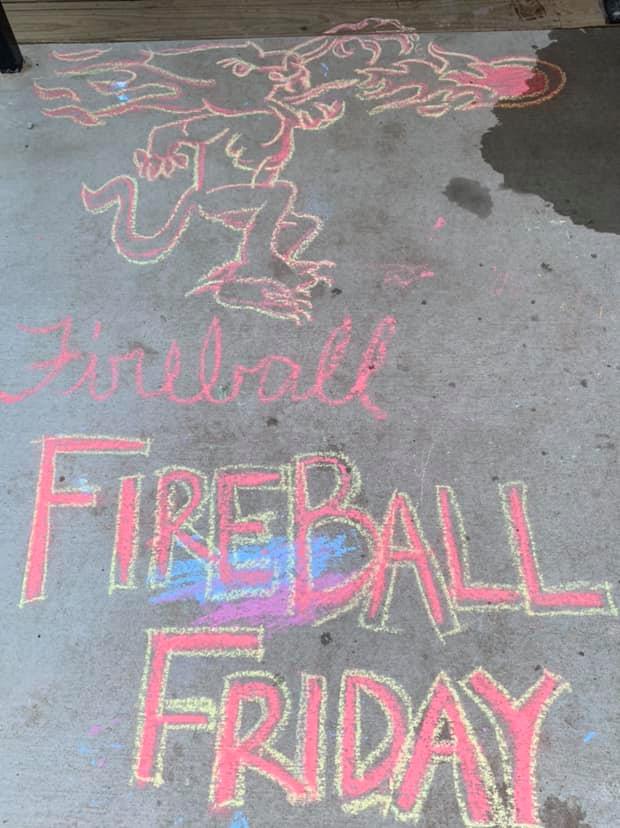 Fireball
FIREBALL
FRIDAY